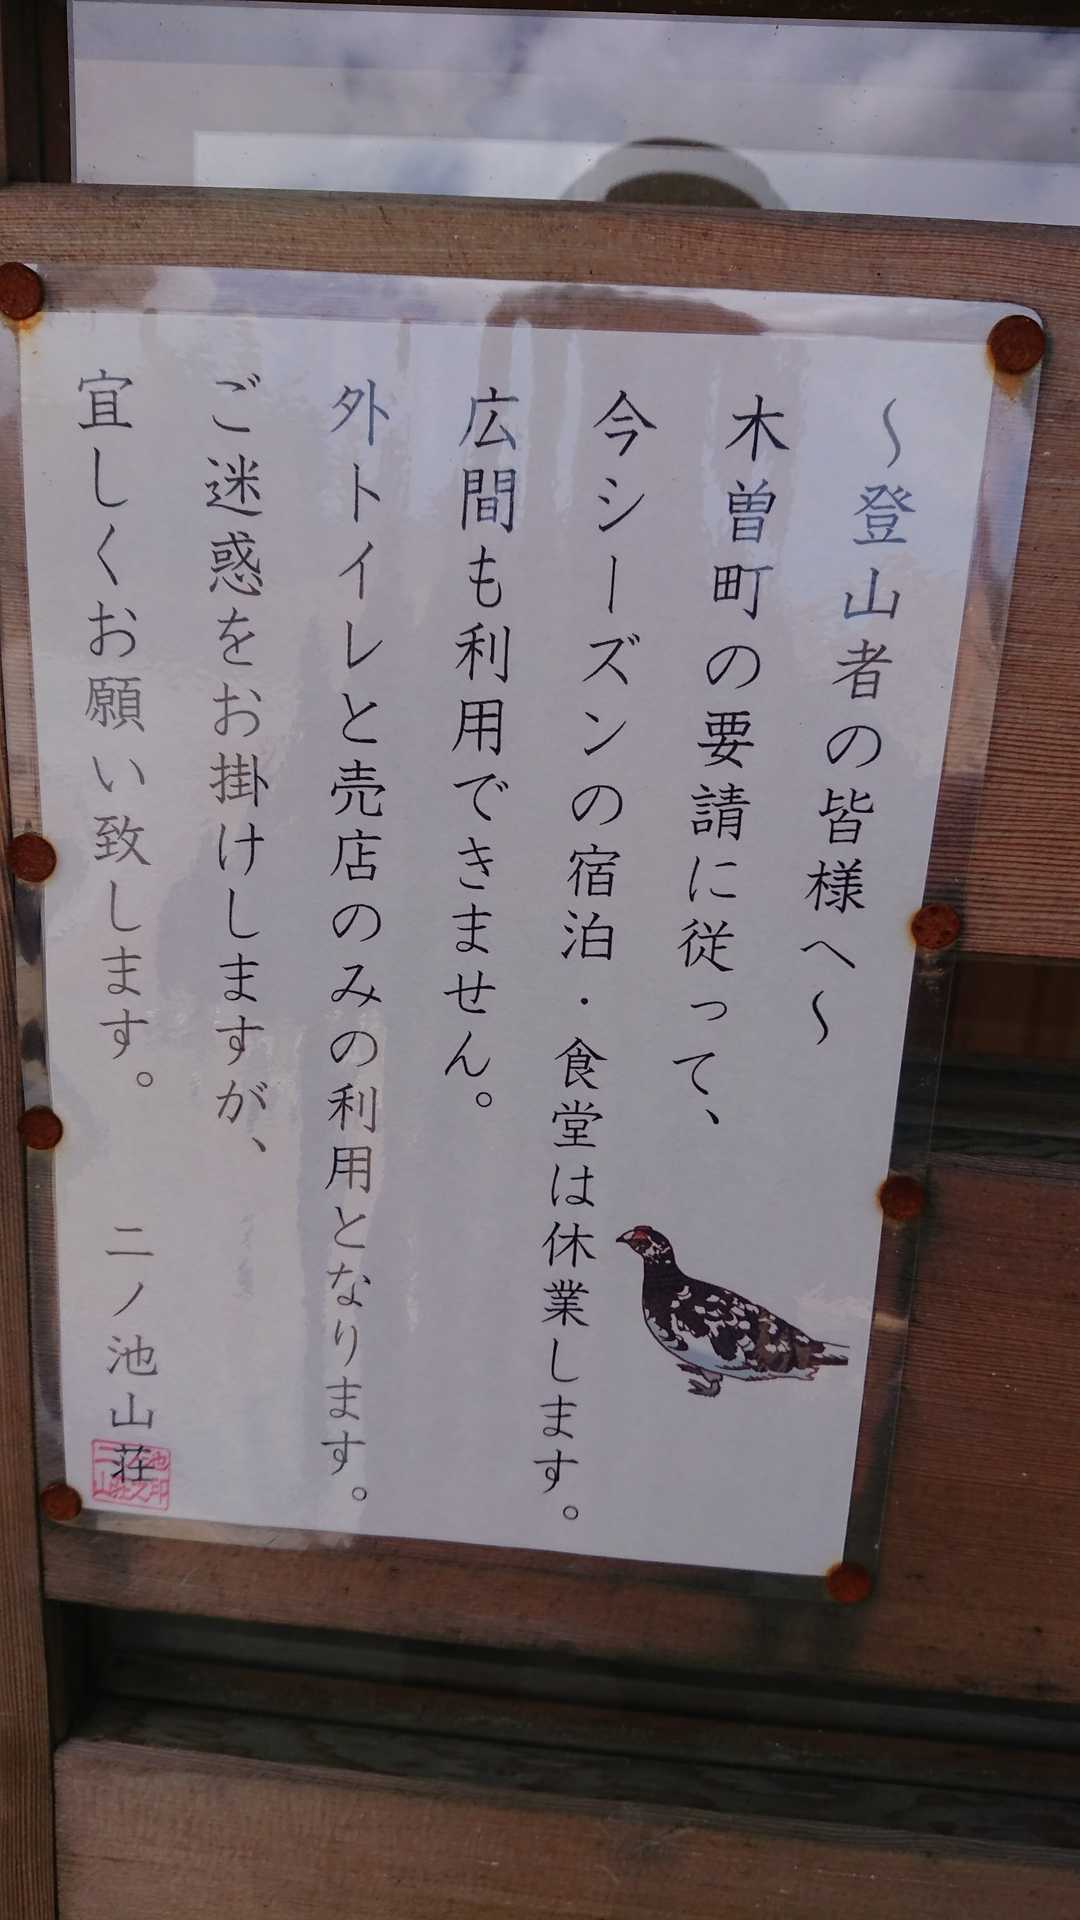 ～登山者の皆様へ～
木曽町の要請に従って、
今シーズンの宿泊・食堂は休業します。
広間も利用できません。
外トイレと売店のみの利用となります。
ご迷惑をお掛けしますが、
宜しくお願い致します。
二ノ池山荘